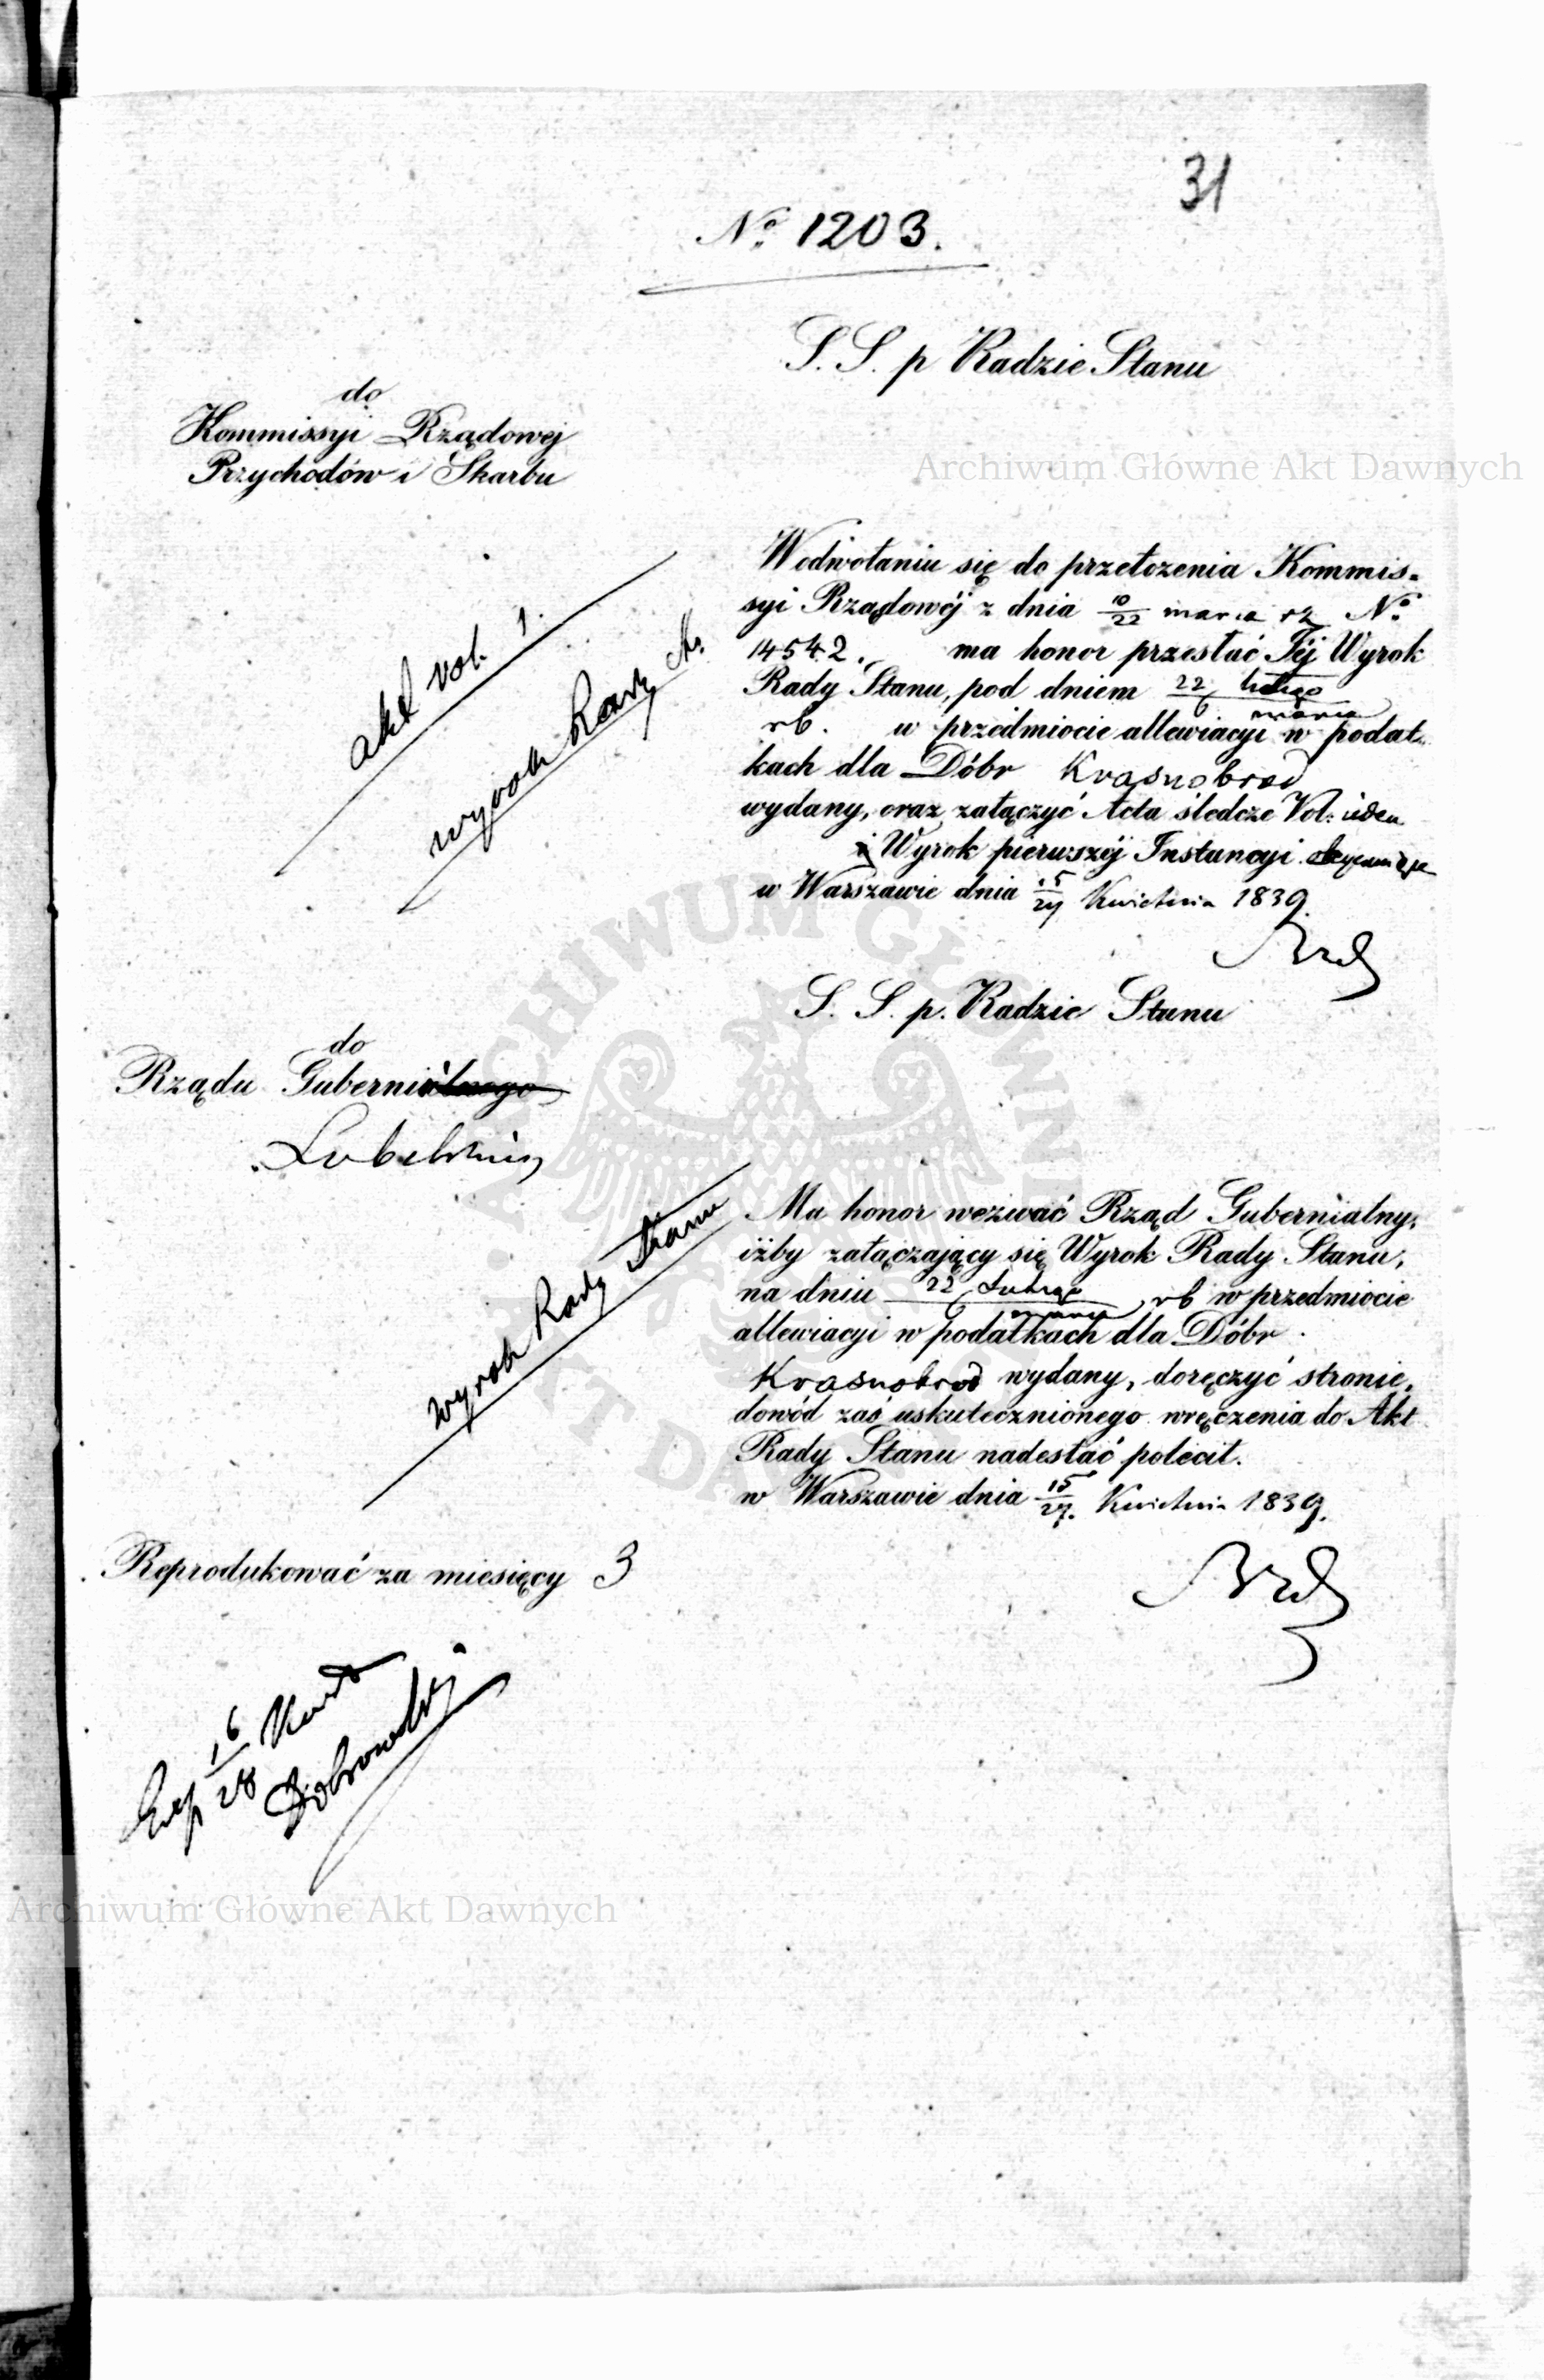 31
No 1203.
S. S. p Radzie Stanu
do
Kommissyi Rządowej
Przychodów i Skarbu
Archiwum Główne Akt Dawnych
W odwołaniu się do przełożenia Kommis=
syi Rządowéj z dnia 10/22 marca No
14542. ma honor przesłać Jéj Wyrok
Rady Stanu, pod dniem 22 lutego
marca
rb. w przedmiocie allewiacyi w podat=
kach dla Dóbr Krasnobrod
wydany, oraz załączyć Acta śledcze Vol:
i Wyrok pierwszéj Instancyi
w Warszawie dnia 15/27 Kwietnia 1839.
akt vol. 1.
wyrok Rady
S. S. p. Radzie Stanu
do
Rządu Gubernialnego
Ma honor wezwać Rząd Gubernialny,
iżby załączający się Wyrok Rady Stanu,
na dniu 22 Lutego rb w przedmiocie
marca
allewiacyi w podatkach dla Dóbr
Krasnobrod wydany, doręczyć stronie,
dowód zaś uskutecznionego wręczenia do Akt
Rady Stanu nadesłać polecił.
w Warszawie dnia 15/27. Kwietnia 1839.
wyrok Rady Stanu
Reprodukować za miesięcy 3
Exp 16/28
Dobrowolski
Archiwum Główne Akt Dawnych
ARCHIWUM GŁÓWNE AKT DAWNYCH